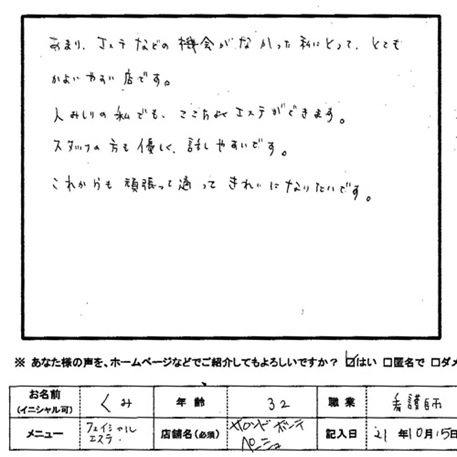 あまり、エステなどの機会がなかった私にとって、とても
かよいやすい店です。
人みしりの私でも、ここちよくエステができます。
スタッフの方も優しく、話しやすいです。
これからも頑張って通ってきれいになりたいです。
※ あなた様の声を、ホームページなどでご紹介してもよろしいですか？ ☑はい □匿名で □ダメ
お名前 (イニシャル可) くみ 年齢 32 職業 看護師
メニュー フェイシャルエステ. 店舗名(必須) サロンド ボーテ 記入日 21年10月15日